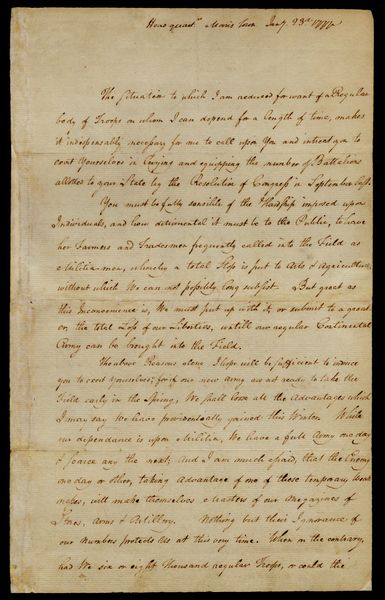 Head quarts. Morris Town Jany. 23d 1777
The Situation to which I am reduced for want of a Regular
body of Troops on whom I can depend for a length of time, makes
it indispensably necessary for me to call upon You and intreat you to
exert Yourselves in levying and equipping the number of Battalions
allotted to your State by the Resolution of Congress in September last.
You must be fully sensible of the Hardship imposed upon
Individuals, and how detrimental it must be to the Public, to have
her Farmers and Tradesmen frequently called into the Field as
Militia men, whereby a total Stop is put to Arts & Agriculture,
without which We can not possibly long subsist. But great as
this Inconvenience is, We must put up with it, or submit to a greater
on, the total Loss of our Liberties, until our regular Continental
Army can be brought into the Field.
The above Reasons alone I hope will be sufficient to induce
you to exert Yourselves; for if our new Army are not ready to take the
Field early in the Spring, We shall loose all the Advantages which
I may say We have providentially gained this Winter. While
our dependance is upon Militia, We have a full Army one day
& scarce any the next; And I am much afraid, that the Enemy
one day or other, taking Advantage of one of these temporary Weak-
nesses, will make themselves Masters of our Magazines of
Stores, Arms & Artillery. Nothing but their Ignorance of
our Numbers protects Us at this very time. When on the contrary,
had We six or eight thousand regular Troops, or could the